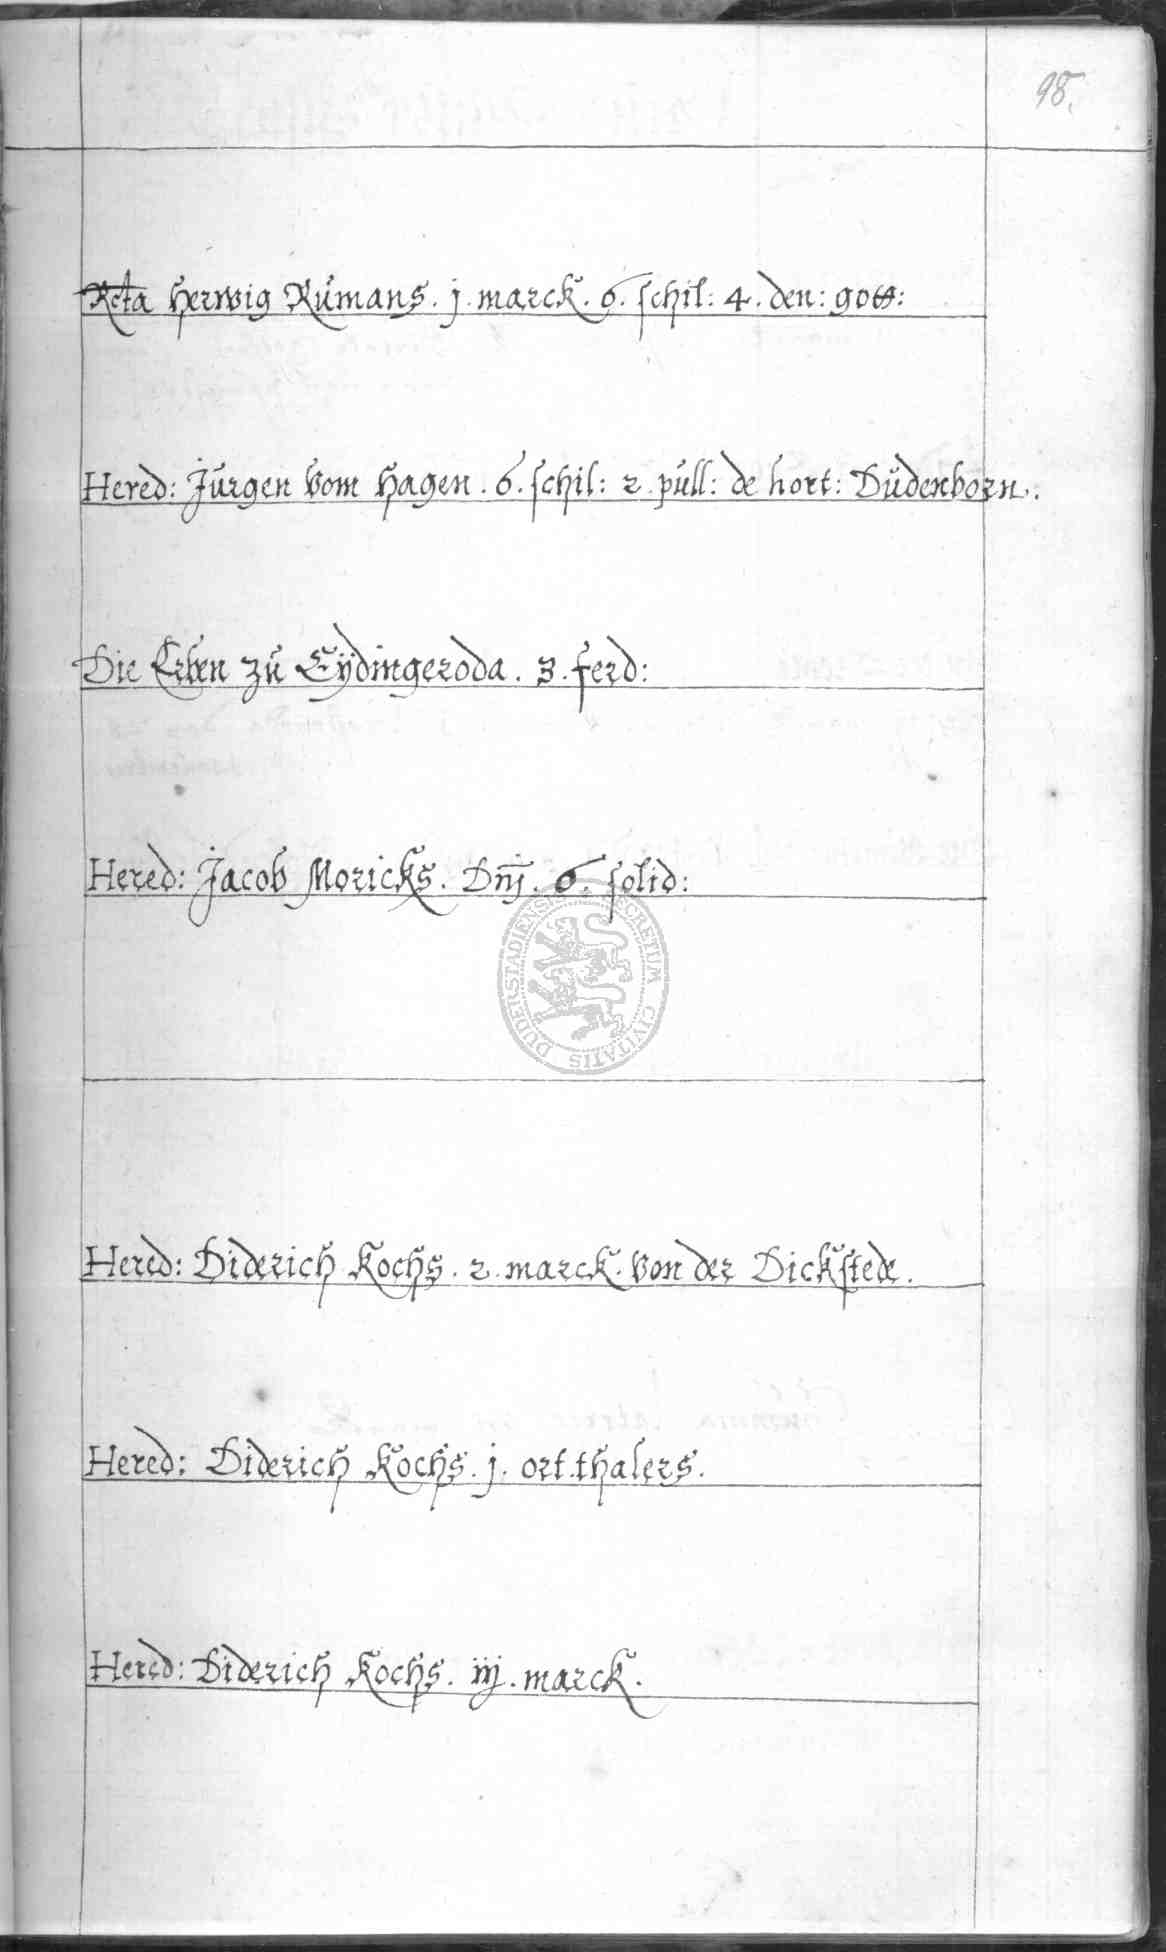 98.
Rcta Herwig Rümans. j. marck. 6. schil: 4. den: gott:
Hered: Jürgen Vom Hagen. 6. schil: 2. püll: de hort: Düdenborn.:
Die Erben zü Eÿdingeroda. 3. ferd:
Hered: Jacob Moricks. Dnj. 6. solid:
DUDERSTADIENSIS SECRETUM CIVITATIS
Hered: Diderich Kochs. 2. marck. Von der Dickstede.
Hered: Diderich Kochs. j. ort. thalers.
Hered: Diderich Kochs. iij. marck.